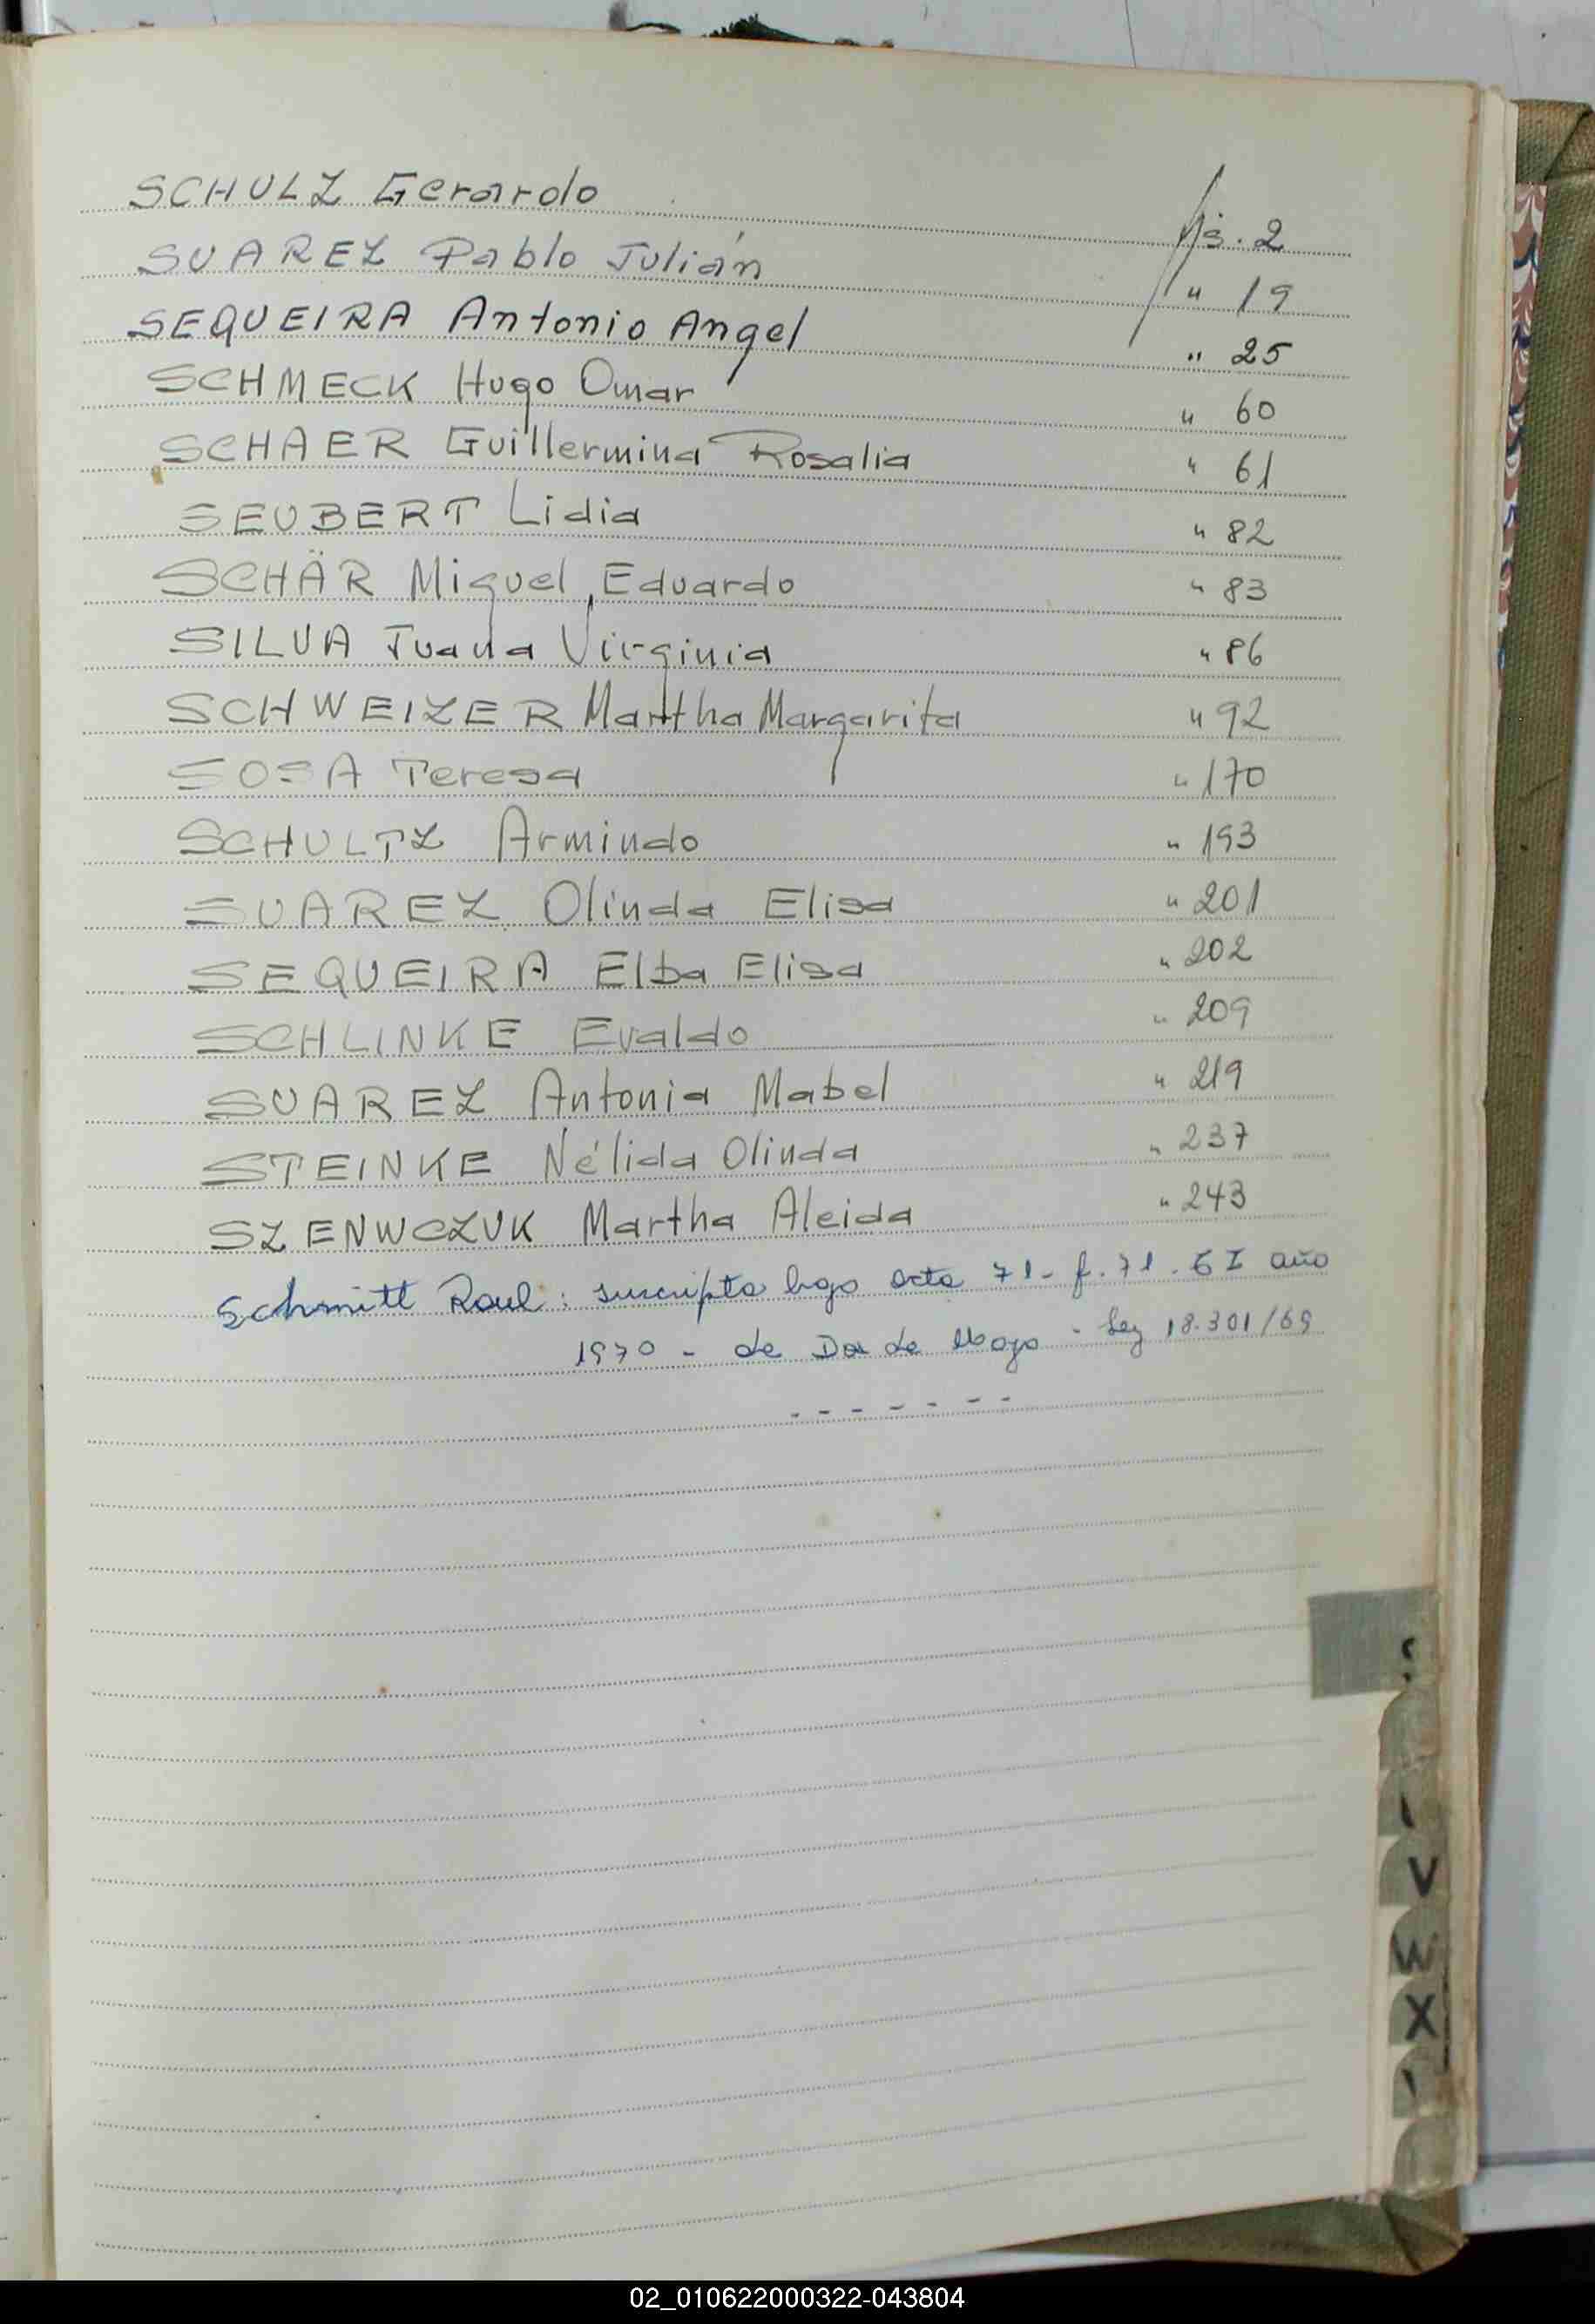 SCHULZ Gerardo fjs. 2
SUAREZ Pablo Julián " 19
SEQUEIRA Antonio Angel " 25
SCHMECK Hugo Omar " 60
SCHAER Guillermina Rosalia " 61
SEUBERT Lidia " 82
SCHÄR Miguel Eduardo " 83
SILVA Juana Virginia " 86
SCHWEIZER Martha Margarita " 92
SOSA Teresa " 170
SCHULTZ Armindo " 193
SUAREZ Olinda Elisa " 201
SEQUEIRA Elba Elisa " 202
SCHLINKE Evaldo " 209
SUAREZ Antonia Mabel " 219
STEINKE Nélida Olinda " 237
SZENWCZUK Martha Aleida " 243
Schmitt Raul: suscripta bajo acta 71- f. 71 - año
1970 - de Dos de Mayo - Ley 18.301/69
- - - - - - -
V
W
X
02_010622000322-043804